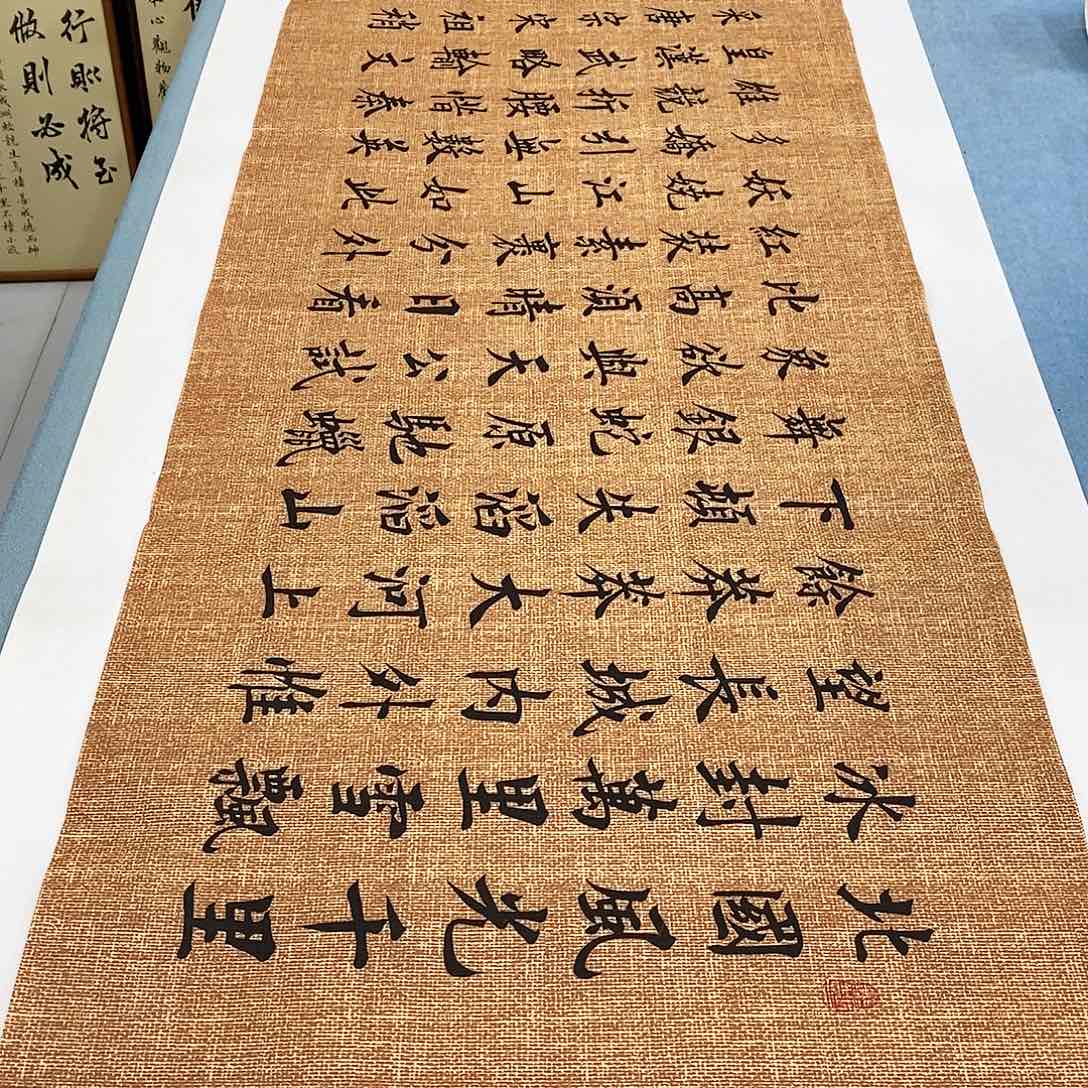 北國風光千里
冰封萬里雪飄
望長城內外惟
餘莽莽大河上
下頓失滔滔山
舞銀蛇原馳蠟
象欲與天公試
比高須晴日看
紅裝素裹分外
妖嬈江山如此
多嬌引無數英
雄競折腰惜秦
皇漢武略輸文
采唐宗宋祖稍
行則將至
做則必成